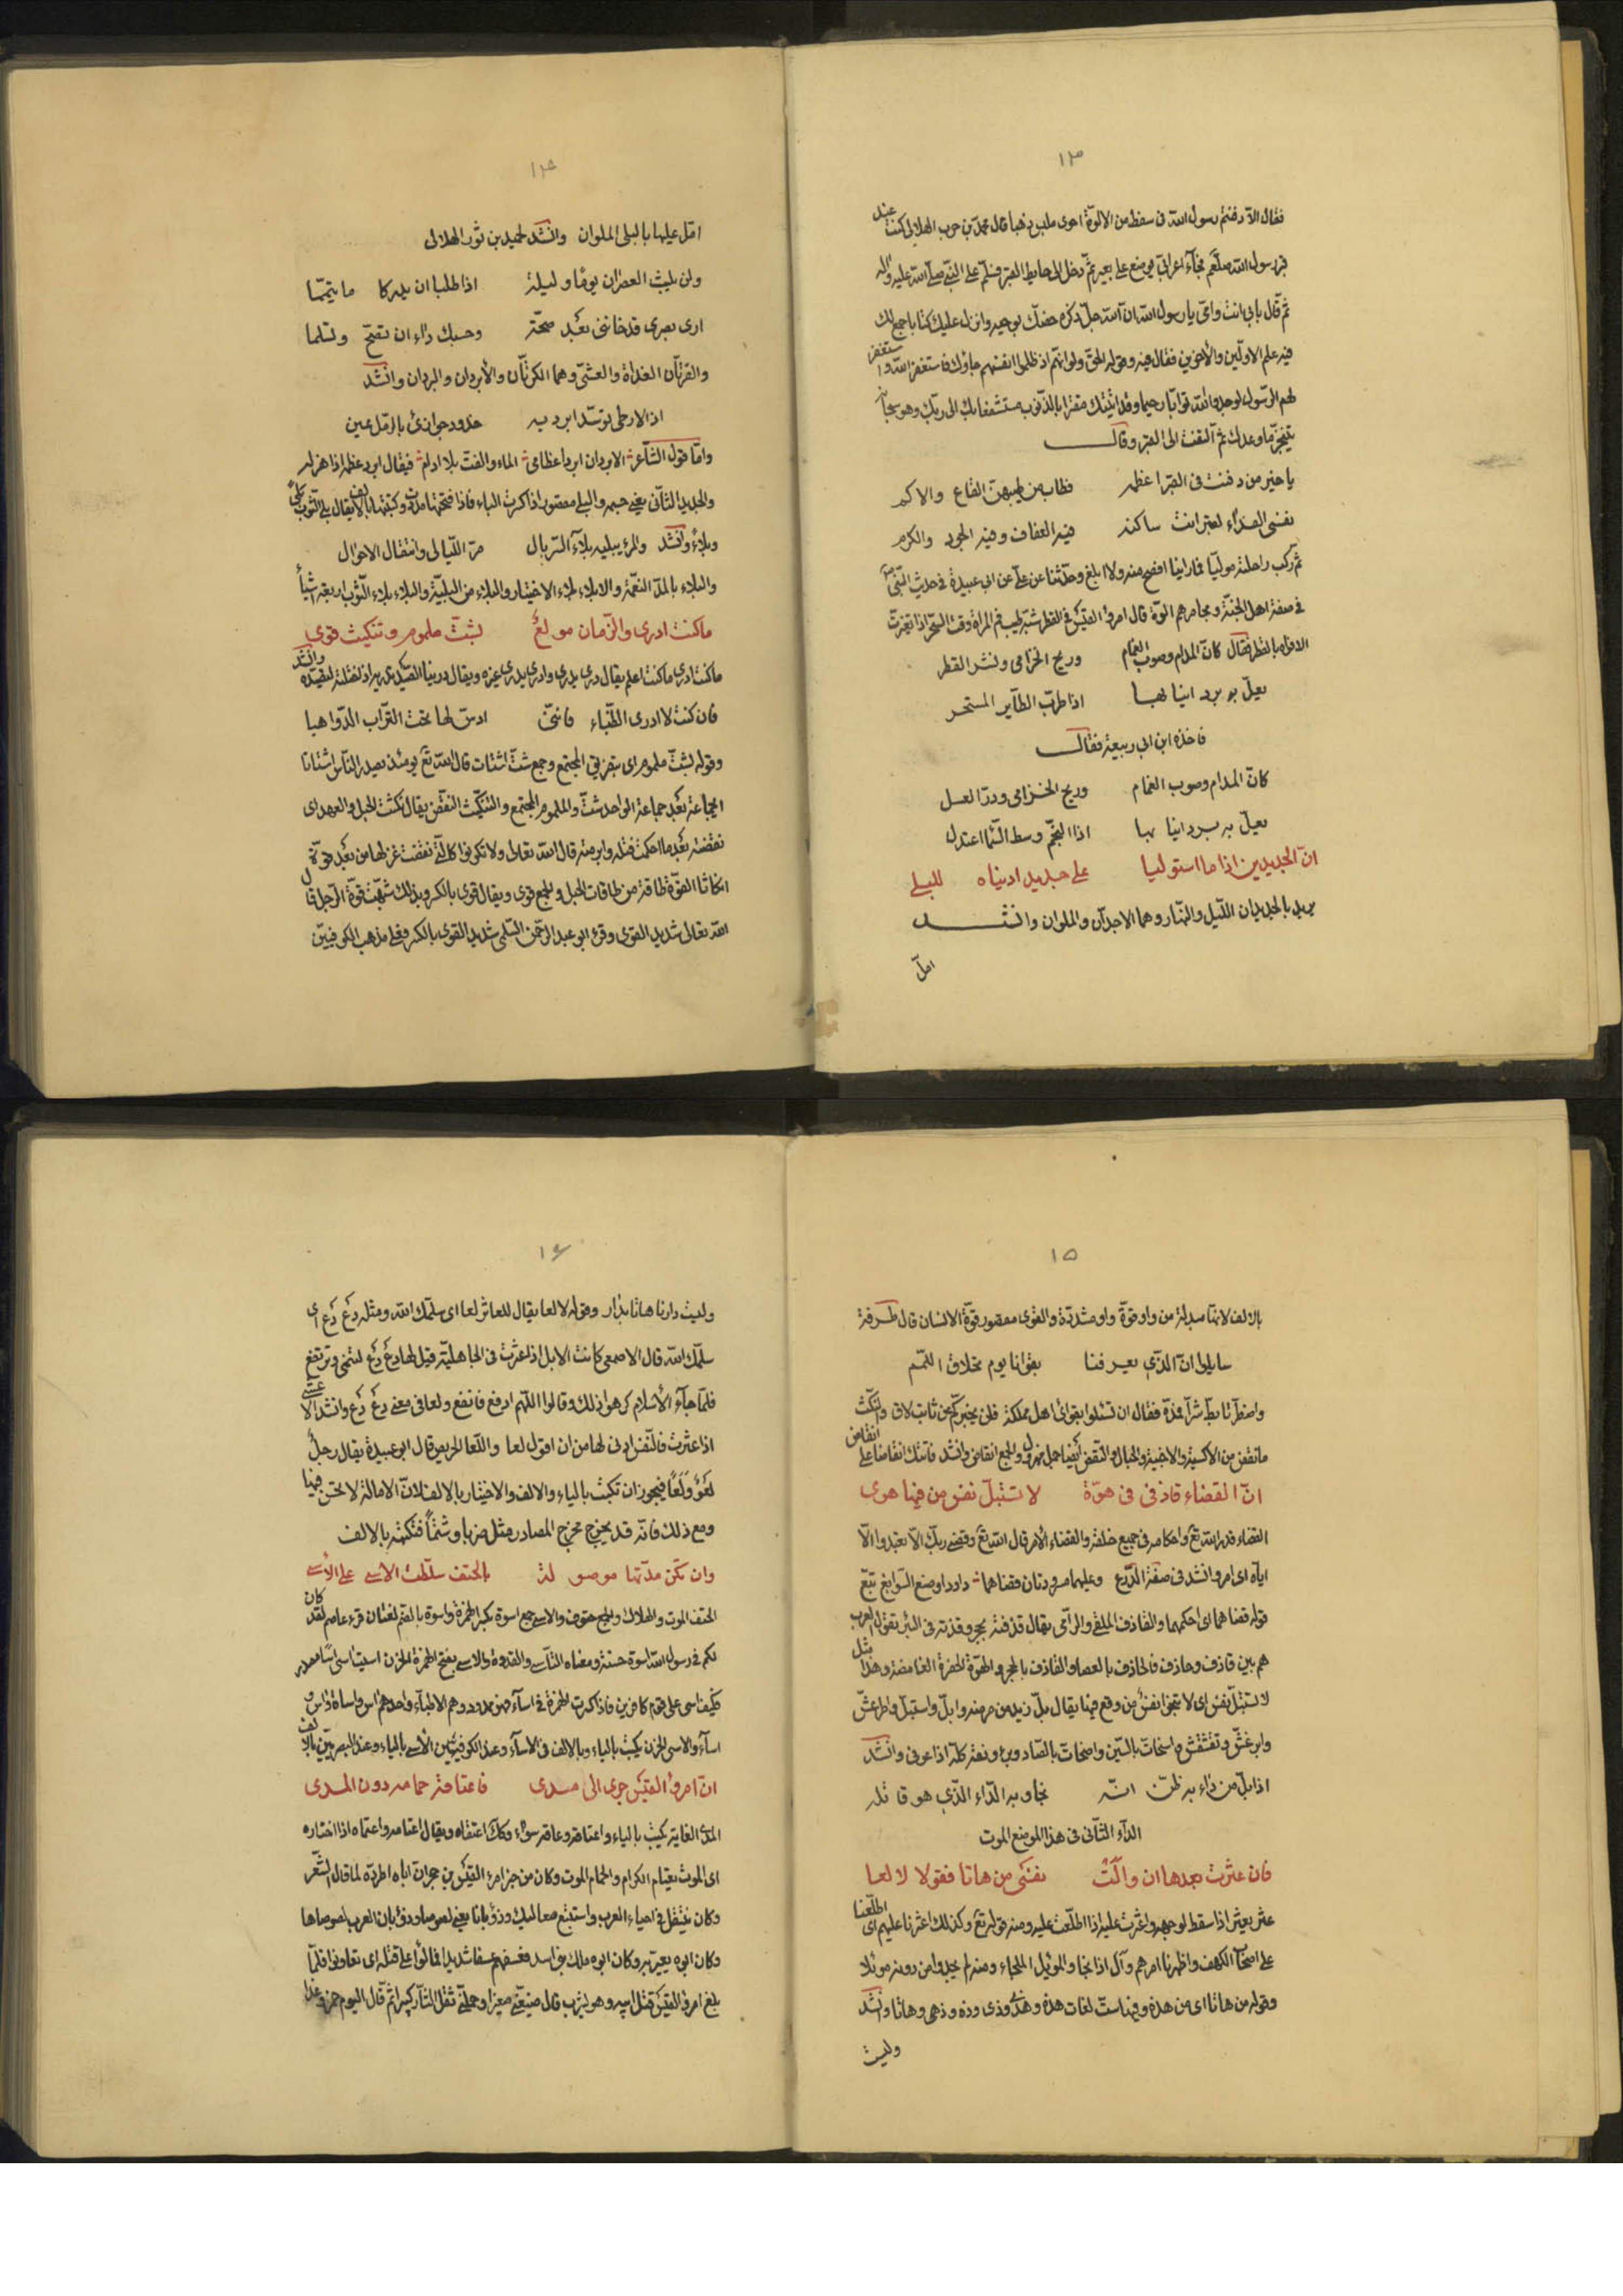 ١٣
فقال الا دفنتم رسول الله فى سفط من الالوّة احوى ملبس ذهبا قال محمد بن حرب الهلالى كنت عند
قبر رسول الله صلعم فجآء اعرابىّ يوضع على بعيره ثمّ دخل الى حايط القبر فسلّم على النبىّ صلّى الله عليه واله
ثمّ قال بابى انت وامّى يا رسول الله ان الله جلّ ذكره خصّك بوحيه وانزل عليك كتابا جمع لك
فيه علم الاوّلين والآخرين فقال فيه وقوله الحقّ ولو انّهم اذ ظلموا انفسهم جاؤك فاستغفروا الله واستغفر
لهم الرّسول لوجدوا الله توّابا رحيما وقد اتيتك مقرّا بالذّنوب مستشفعا بك الى ربّك وهو
ينجز ما وعدك ثمّ التفت الى القبر وقال
يا خير من دفنت فى القبر اعظمه فطاب من طيبهنّ القاع والاكم
نفسى الفدآء لقبر انت ساكنه فيه العفاف وفيه الجود والكرم
ثمّ ركب راحلته مولّيا فما راينا افصح منه ولا ابلغ وحدّثنا عن علىّ عن ابى عبيدة فى حديث النّبى
فى صفة اهل الجنّة ومجامرهم الالوّة قال امرؤ القيس فى القطر شبّه طيب فم المراة وقت السّحر اذا تغيّرت
الافواه بالقطر فقال كانّ المدام وصوب الغمام وريح الخزامى ونشر القطر
يعلّ به برد انيابها اذا طرّب الطّاير المستحر
فاخذه ابن ابى ربيعة فقال
كانّ المدام وصوب الغمام وريح الخزامى وذوب العسل
يعلّ به برد انيابها اذا النجم وسط السّما اعتدل
انّ الجديدين اذا ما استوليا على جديد ادنياه للبلى
يريد بالجديدان اللّيل والنّهار وهما الاجدّان والملوان وانشد
امل
١٤
امل عليها بالبلى الملوان وانشد لحميد بن ثور الهلالى
ولن يلبث العصران يوما وليلة اذا طلبا ان يدركا ما تيمّما
ارى بصرى قد خاننى بعد صحّة وحسبك دآء ان تصحّ وتسلما
والقرنان الغداة والعشىّ وهما الكرّتان والأبردان والبردان وانشد
اذا الارطى توسّد ابرديه خدود جوازئ بالرّمل عين
وامّا قول الشاعر الابردان ابردا عظامى الماء والفتّ بلا ادام فيقال ابرد عظمه اذا هزله
والجديد الثانى يعنى جسمه والبلى مقصور اذا كسرت الباء فاذا فتحتها مددت وكتبتها بالالف يقال بلى الثّوب بلىً
وبلآءً وانشد والمرء يبليه بلآء السّربال مرّ اللّيالى وانتقال الاحوال
والبلاء بالمدّ النّعمة والابلاء الاختبار والبلاء من البليّة والبلاء بلاء الثّوب اربعة اشيآء
ما كنت ادرى والزّمان مولع بشتّ ملموم وتنكيث قوى
ما كنت ادرى ما كنت اعلم يقال درى يدرى وادرى يدرى غيره ويقال درينا الصّيد ندريه اذا ختلته لتصيده وانشد
فان كنت لا ادرى الظّباء فانّنى ادسّ لها تحت التّراب الدّواهيا
وقوله بشتّ ملموم اى بتفريق المجتمع وجمع شتّ اشتات قال الله تع يومئذ يصدر النّاس اشتاتا
اى جماعة بعد جماعة الواحد شتّ والملموم المجتمع والتنكيث النّقض يقال نكثت الحبل والعهد اى
نقضته بعد ما احكمت فتله وابرمته قال الله تعالى ولا تكونوا كالّتى نقضت غزلها من بعد قوّة
انكاثا القوّة طاقة من طاقات الحبل والجمع قوى ويقال قوى بالكسر وبذلك شبّهت قوّة الرّجل قال
الله تعالى شديد القوى وقرء ابو عبد الرّحمن السّلمى شديد القوى بالكسر فعلى مذهب الكوفيين
١٥
بالالف لانّها مبدلة من واو قوّة واو مشدّدة والقوى مقصور قوّة الانسان قال طرفة
سايلوا انّا الّذى يعرفنا بقوانا يوم تحلاق اللمم
ما نقض من الاكسية والاخبية والحبال والنّقض ايضا جمل مهزول والجمع انقاض وانشد فاتتك انقاضا على انقاض
انّ القضاء قاذفى فى هوّة لا تستبلّ نفس من فيها هوى
القضاء قدر الله تع واحكامه فى جميع خلقه والقضاء الأمر قال الله تع وقضى ربّك الّا تعبدوا الّا
ايّاه اى امر وانشد فى صفة الدّرع وعليهما مسرودتان قضاهما داود او صنع السّوابغ تبّع
قوله قضاهما اى احكمهما والقاذف الملقى والرّامى يقال قذفته بحجر وقذفته فى البئر تقول العرب
هم بين قاذف وحاذف فالحاذف بالعصا والقاذف بالحجر والهوّة الحفرة الغامضة وهذا مثل
لا تستبلّ نفس اى لا تنجو نفس من وقع فيها يقال بلّ زيد من مرضه وابلّ واستبلّ واطرغشّ
وابرغشّ وتقشقش واسحات بالسّين واصحات بالصّاد وبرء ونقه كلّه اذا عوفى وانشد
اذا بلّ من دآء به ظنّ انّه نجا وبه الدّاء الّذى هو قاتله
الدّآء الثّانى فى هذا الموضع الموت
فان عثرت بعدها ان والّت نفسى من هاتا فقولا لا لعا
عثر يعثر اذا سقط لوجهه واعثرت عليه اذا اطّلعت عليه ومنه قوله تع وكذلك اعثرنا عليهم اى اطلعنا
على اصحاب الكهف واظهرنا امرهم وآل اذا نجا والموئل الملجاء ومنه لم يجدوا من دونه موئلا
وقوله من هاتا اى من هذه وفيها ستّ لغات هذه وهذى وذى وذه وذهى وهاتا وانشد
وليت
١٦
وليت دارنا هاتا بدار وقوله لا لعا يقال للعاثر لعا اى سلّمك الله ومثله دع دع اى
سلّمك الله قال الاصمعى كانت الابل اذا عثرت فى الجاهليّة قيل لها دع دع لتنمى وترتفع
فلمّا جآء الأسلام كرهوا ذلك وقالوا اللّهم ارفع فانفع ولعا فى معنى دع دع وانشد الاعشى
اذا عثرت فالتّعس ادنى لها من ان اقول لعا واللّعا الحريص قال ابو عبيدة يقال رجل
لعو ولعا فيجوز ان تكتب بالياء والالف والاختيار بالالف لانّ الامالة لا تحسن فيها
ومع ذلك فانّه قد يخرج مخرج المصادر مثل ضربا وشتما فتكتبه بالالف
وان تكن مدّتها موصولة بالحتف سلّطت الاسى على الأسى
الحتف الموت والهلاك والجمع حتوف والاسى جمع اسوة بكسر الهمزة واسوة بالضّم لغتان قرء عاصم لقد كان
لكم فى رسول الله اسوة حسنة ومعناه التأسّى والقدوة والاسى بفتح الهمزة الحزن اسيت اسى اسًا مصدر
فكيف اسى على قوم كافرين فاذا كسرت الهمزة فى اسآء فهو ممدود وهم الاطبآء واحدهم آس واساة
اسآء والاسى الحزن يكتب بالياء وبالالف فى الاسآء وعند الكوفيين الأسى بالياء وعند البصريّين بالالف
انّ امرؤ القيس جرى الى مدى فاعتاقه حمامه دون المدى
المدى الغاية يكتب بالياء واعتاقه وعاقه سوآء وكك اعتقاه ويقال اعتامه واعتماه اذا اختاره
اى الموت يعتام الكرام والحمام الموت وكان من خبر امرء القيس بن حجر انّ اباه اطرده لما قال الشّعر
وكان ينتقل فى احياء العرب واستتبع صعاليك وذؤبانا يعنى لصوصا وذؤبان العرب لصوصها
وكان ابوه ملك بنى اسد فعسفهم عسفا شديدا فمالئوا على قتله اى تعاونوا فلمّا
بلغ امرؤ القيس قتل ابيه وهو يشرب قال ضيّعنى صغيرا وحمّلنى ثقل الثّار كبيرا ثمّ قال اليوم خمر وغدا